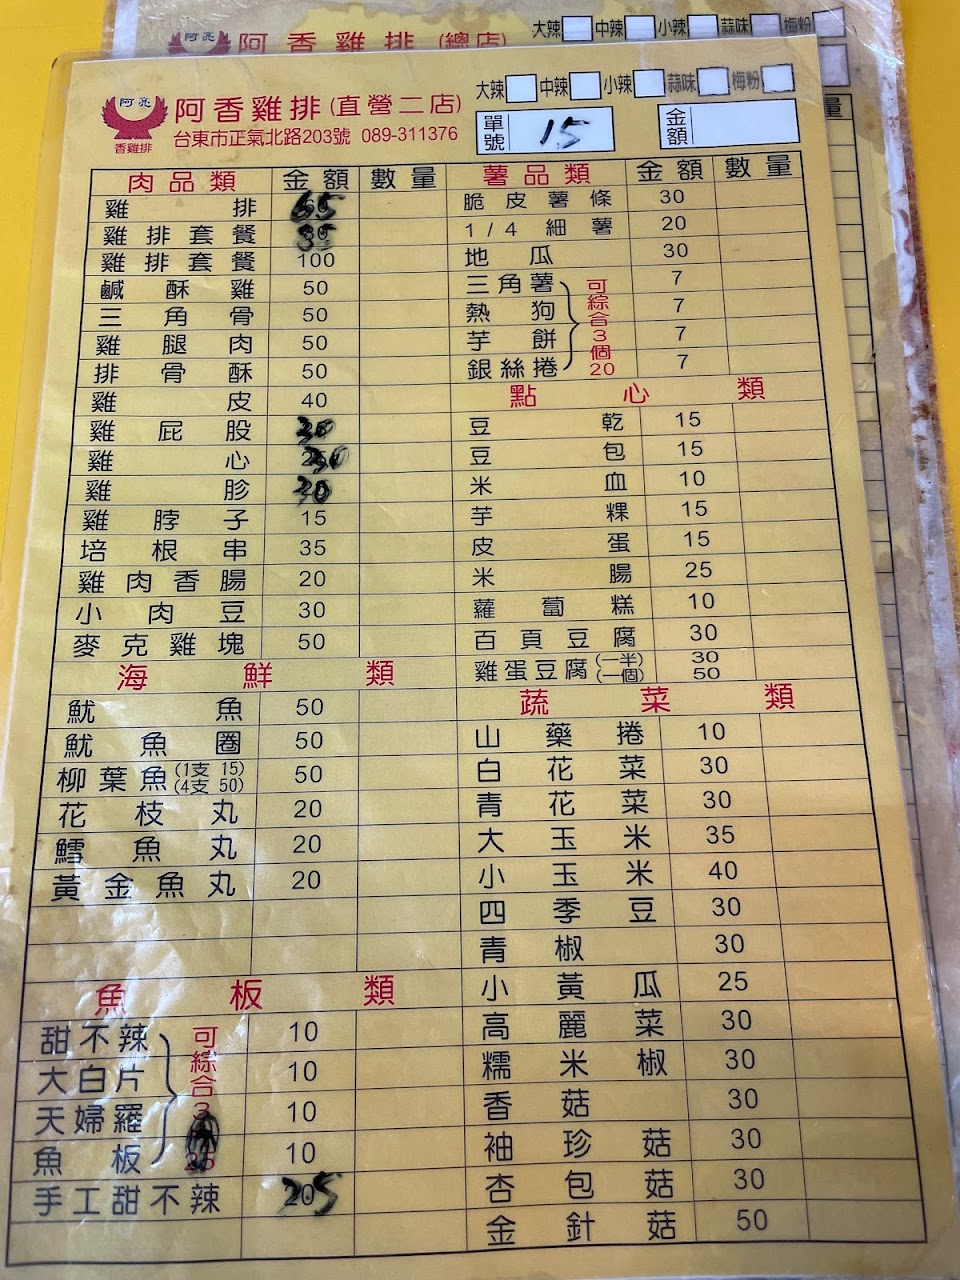 阿亮 阿香雞排 (總店)
大辣 中辣 小辣 蒜味 梅粉
阿亮
香雞排
阿香雞排(直營二店)
台東市正氣北路203號 089-311376
大辣 中辣 小辣 蒜味 梅粉
單號 15 金額
肉品類 金額 數量
雞排 65
雞排套餐
雞排套餐 100
鹹酥雞 50
三角骨 50
雞腿肉 50
排骨酥 50
雞皮 40
雞屁股 30
雞心 30
雞胗 30
雞脖子 15
培根串 35
雞肉香腸 20
小肉豆 30
麥克雞塊 50
海鮮類
魷魚 50
魷魚圈 50
柳葉魚(1支 15)(4支 50) 50
花枝丸 20
鱈魚丸 20
黃金魚丸 20
魚板類
甜不辣 10
大白片 10
天婦羅 10
魚板 10
可綜合3
手工甜不辣 205
薯品類 金額 數量
脆皮薯條 30
1/4細薯 20
地瓜 30
三角薯 7
熱狗 7
芋餅 7
銀絲捲 7
可綜合3個20
點心類
豆乾 15
豆包 15
米血 10
芋粿 15
皮蛋 15
米腸 25
蘿蔔糕 10
百頁豆腐 30
雞蛋豆腐(一半) 30
(一個) 50
蔬菜類
山藥捲 10
白花菜 30
青花菜 30
大玉米 35
小玉米 40
四季豆 30
青椒 30
小黃瓜 25
高麗菜 30
糯米椒 30
香菇 30
袖珍菇 30
杏包菇 30
金針菇 50
量